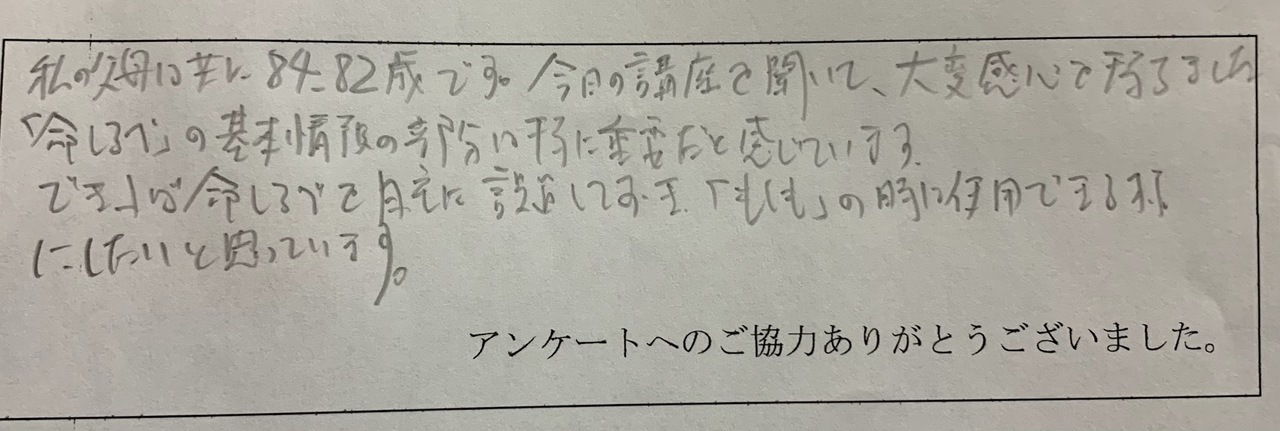 私の父母は共に84、82歳です。今日の講座を聞いて、大変感心を持ちました
「命しるべ」の基本情報の部分は特に重要だと感じています。
できれば命しるべを自宅に設置しておき「もしも」の時に使用できる様
にしたいと思っています。
アンケートへのご協力ありがとうございました。